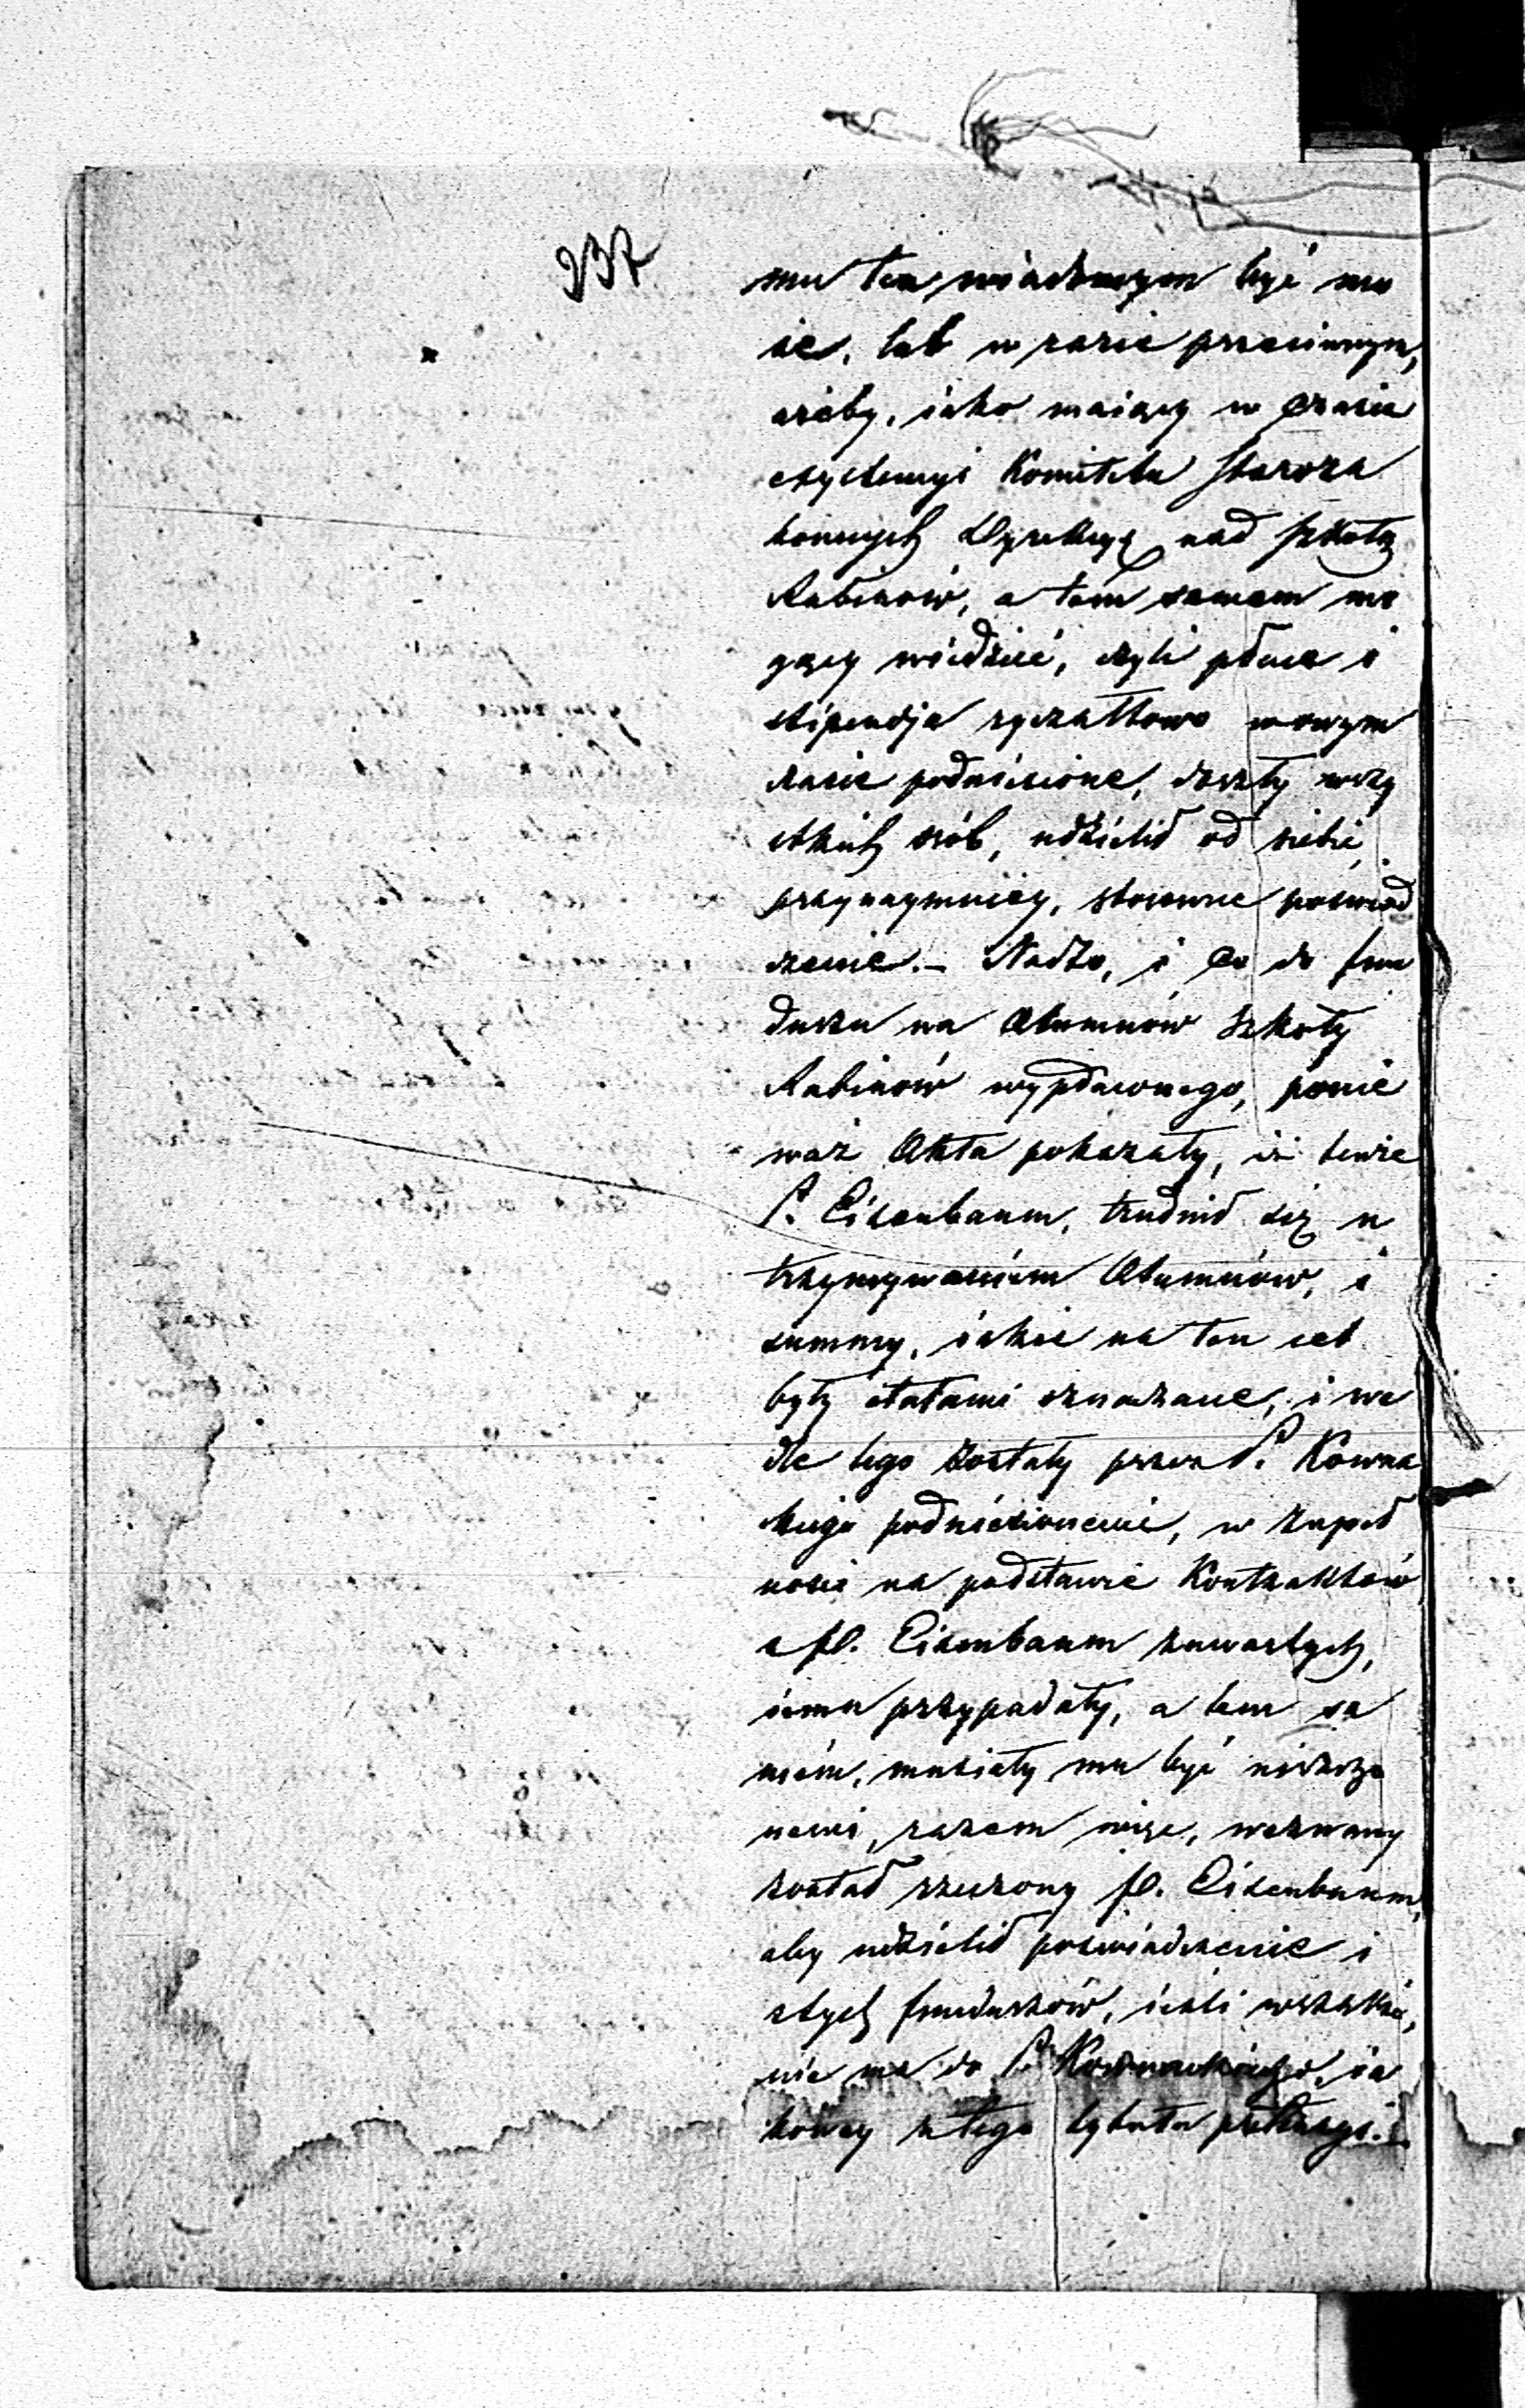 237
mu ten wiadomym być mo
że, lub w razie przeciwnym,
ażeby, iako maiący w czasie
exystencyi Komitetu Staroza
konnych Dyrekcyą nad Szkołą
Rabinów, a tém samem mo
gący wiedzieć, czyli płace i
stipendja ryczałtowo w owym
czasie podniesione, doszły wszy
stkich osób, udzielił od siebie
przynaymniéy, stosowne poświad
czenie. – Nadto, i co do fun
duszu na Alumnów Szkoły
Rabinów wypłaconego, ponie
waż Akta pokazały, iż tenże
P. Eisenbaum, trudnił się u
trzymywaniem Alumnów, i
summy, iakie na ten cel
były etatami oznaczane, i we
dle tego zostały przez P. Kowna
ckiego podniesionemi, w zupeł
ności na podstawie Kontraktów
z P. Eisenbaum zawartych,
iemu przypadały, a tem sa
mém, musiały mu być uiszczo
nemi, razem więc, wezwany
został rzeczony P. Eisenbaum,
aby udzielił poświadczenie i
z tych funduszów, ieśli wszakże,
nie ma do P. Kownackiego, ia
kowéy z tego tytułu pretensyi. –